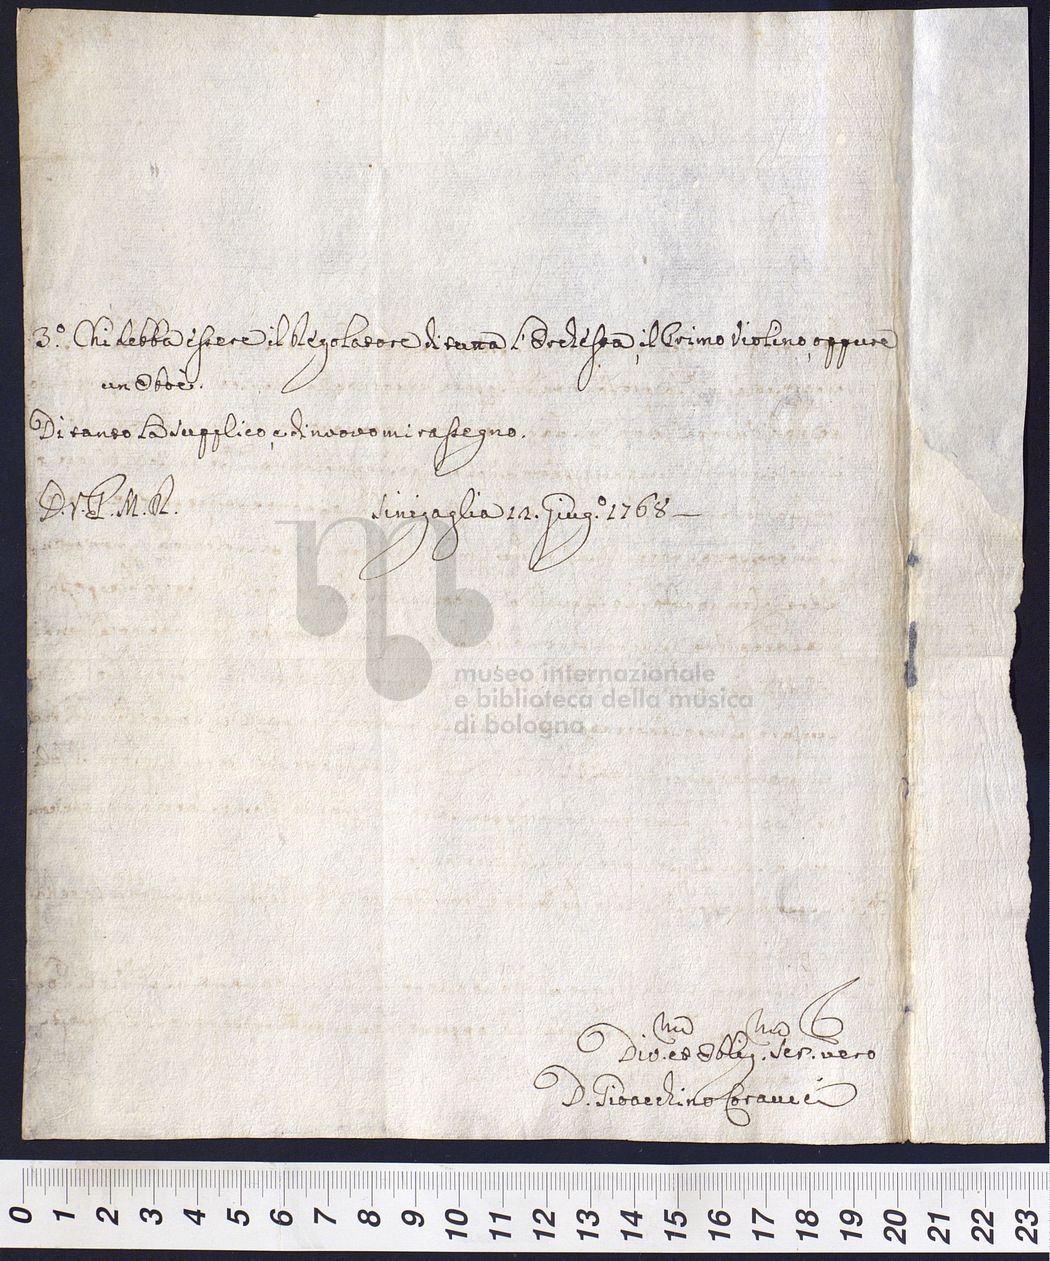 3.° Chi debba essere il Regolatore di tutta l'Orchesta, il Primo Violino, oppure
un Oboè.
Di tanto La supplico, e di nuovo mi rassegno.
D. V. P. M. R. Sinigaglia 12. Giug.° 1768 —
museo internazionale
e biblioteca della musica
di bologna
Div.mo ed Obblig.mo Ser. vero
D. Gioacchino
0 1 2 3 4 5 6 7 8 9 10 11 12 13 14 15 16 17 18 19 20 21 22 23